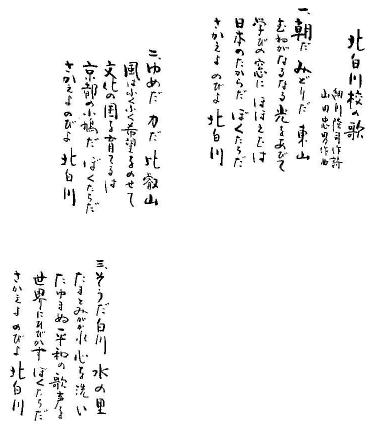 北白川校の歌
細川俊司作詩
山田忠男作曲
一、朝だ みどりだ 東山
むねがなるなる光をあびて
学びの窓に ほほえむは
日本のたからだ ぼくたちだ
さかえよ のびよ 北白川
二、ゆめだ 力だ 比叡山
風はふくふく希望をのせて
文化の国を育てるは
京都の小鳩だ ぼくたちだ
さかえよ のびよ 北白川
三、そうだ白川 水の里
たまとみがかれ 心を洗い
たゆまぬ平和の歌声を
世界にひびかす ぼくたちだ
さかえよ のびよ 北白川